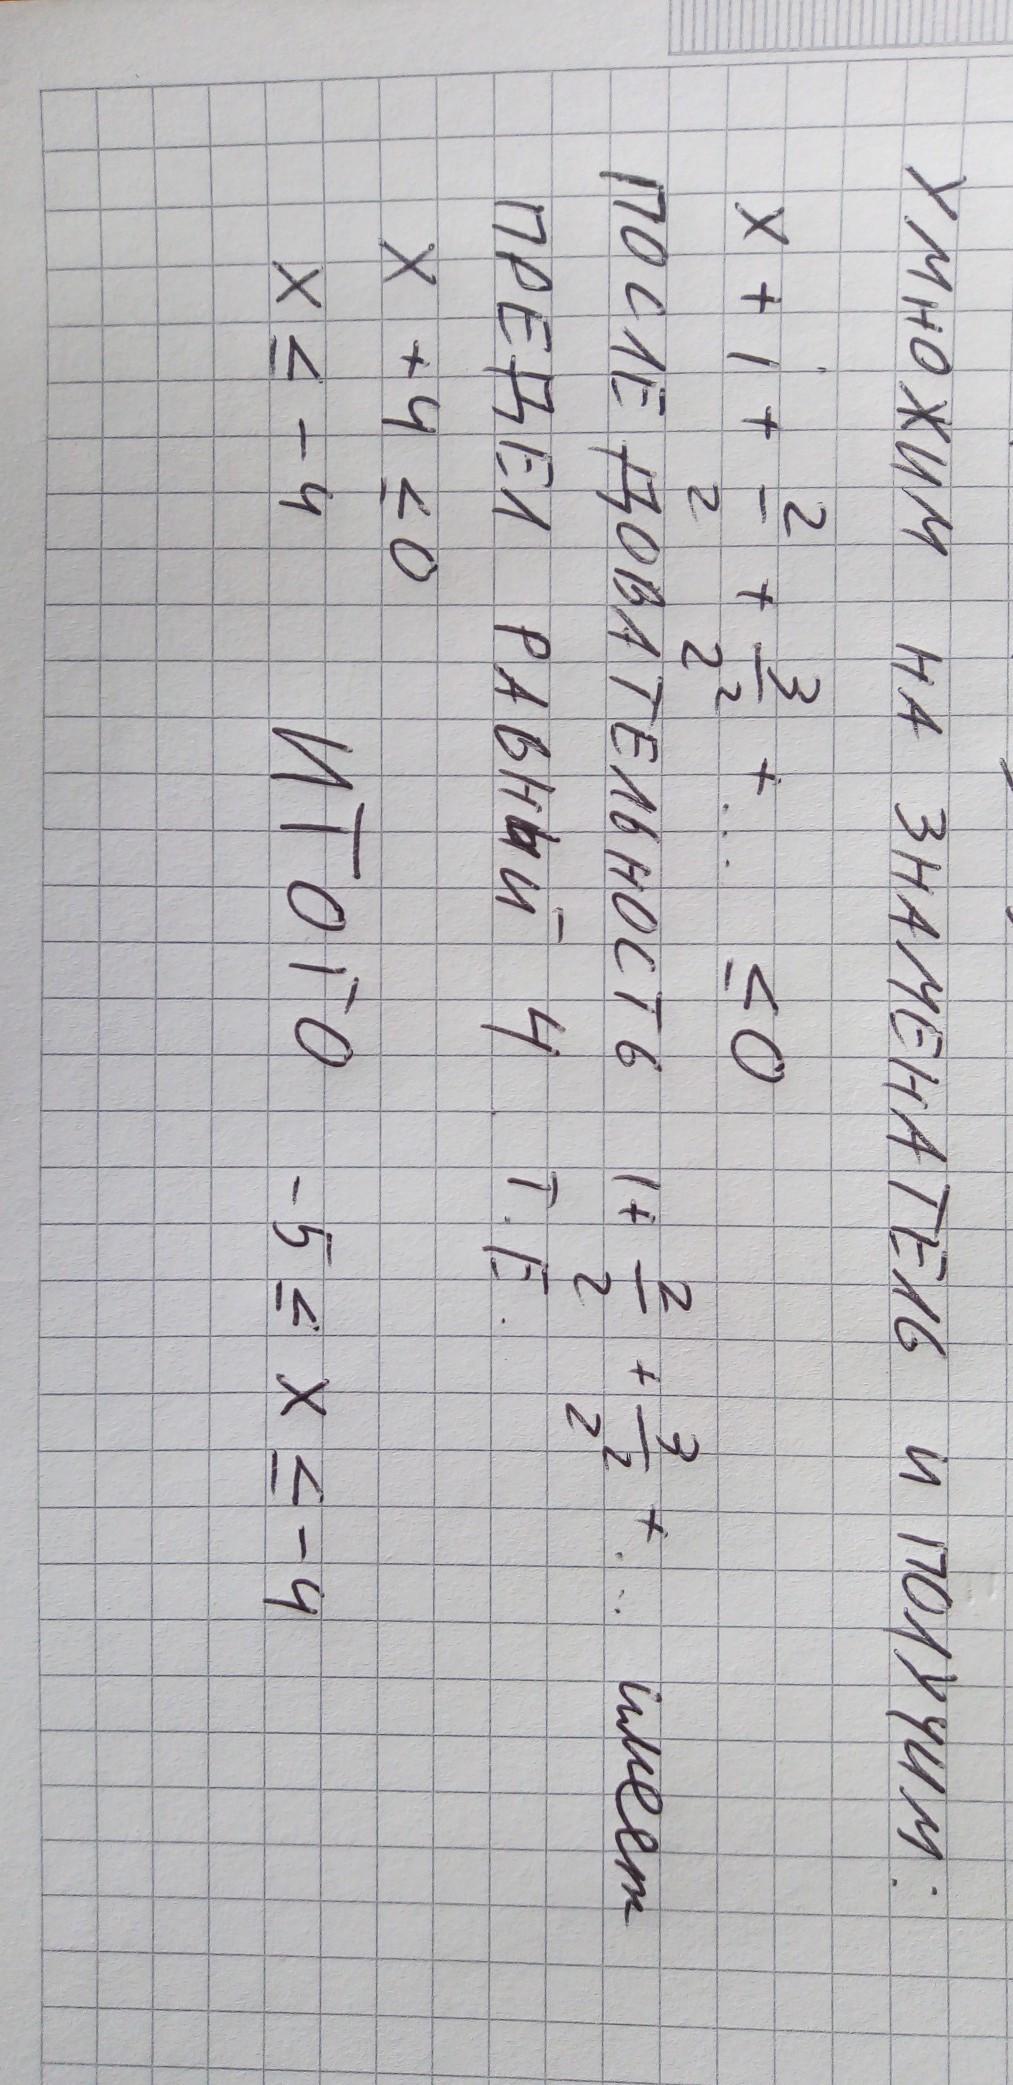 УМНОЖИМ НА ЗНАМЕНАТЕЛЬ И ПОЛУЧИМ:
x + 1 + 2/2 + 3/2² + ... ≤ 0
ПОСЛЕДОВАТЕЛЬНОСТЬ 1 + 2/2 + 3/2² + ... имеет
ПРЕДЕЛ РАВНЫЙ 4 Т.Е.
x + 4 ≤ 0
x ≤ -4 ИТОГО -5 ≤ x ≤ -4